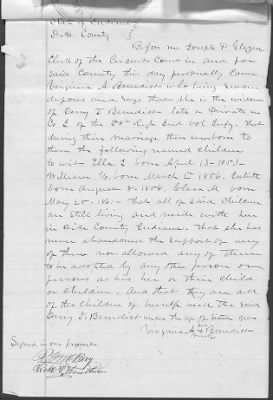 State of Indiana
County
Before me Joseph P. Glezen
Clerk of the Circuit Court in and for
said County this day personally came
Virginia A. Benedict who being sworn
deposes and says that she is the widow
of Perry T. Benedict late a Private in
Co I of the Regt Ind Vol Infty. that
during their marriage there was born to
them the following named children
to wit: Ella I. born April 13-1853-
William H. born March 2 1856.
born August 8-1858. Clara M. born
May 25-1861- that all of said children
are still living and reside with her
in Pike County Indiana. That she has
never abandoned the support of any
of them nor allowed any of them
to be adopted by any other person or
persons as his her or their child
or children. And that they are all
of the children of herself and the said
Perry T. Benedict under the age of sixteen years
Virginia A. Benedict
mark
Signed in our presence